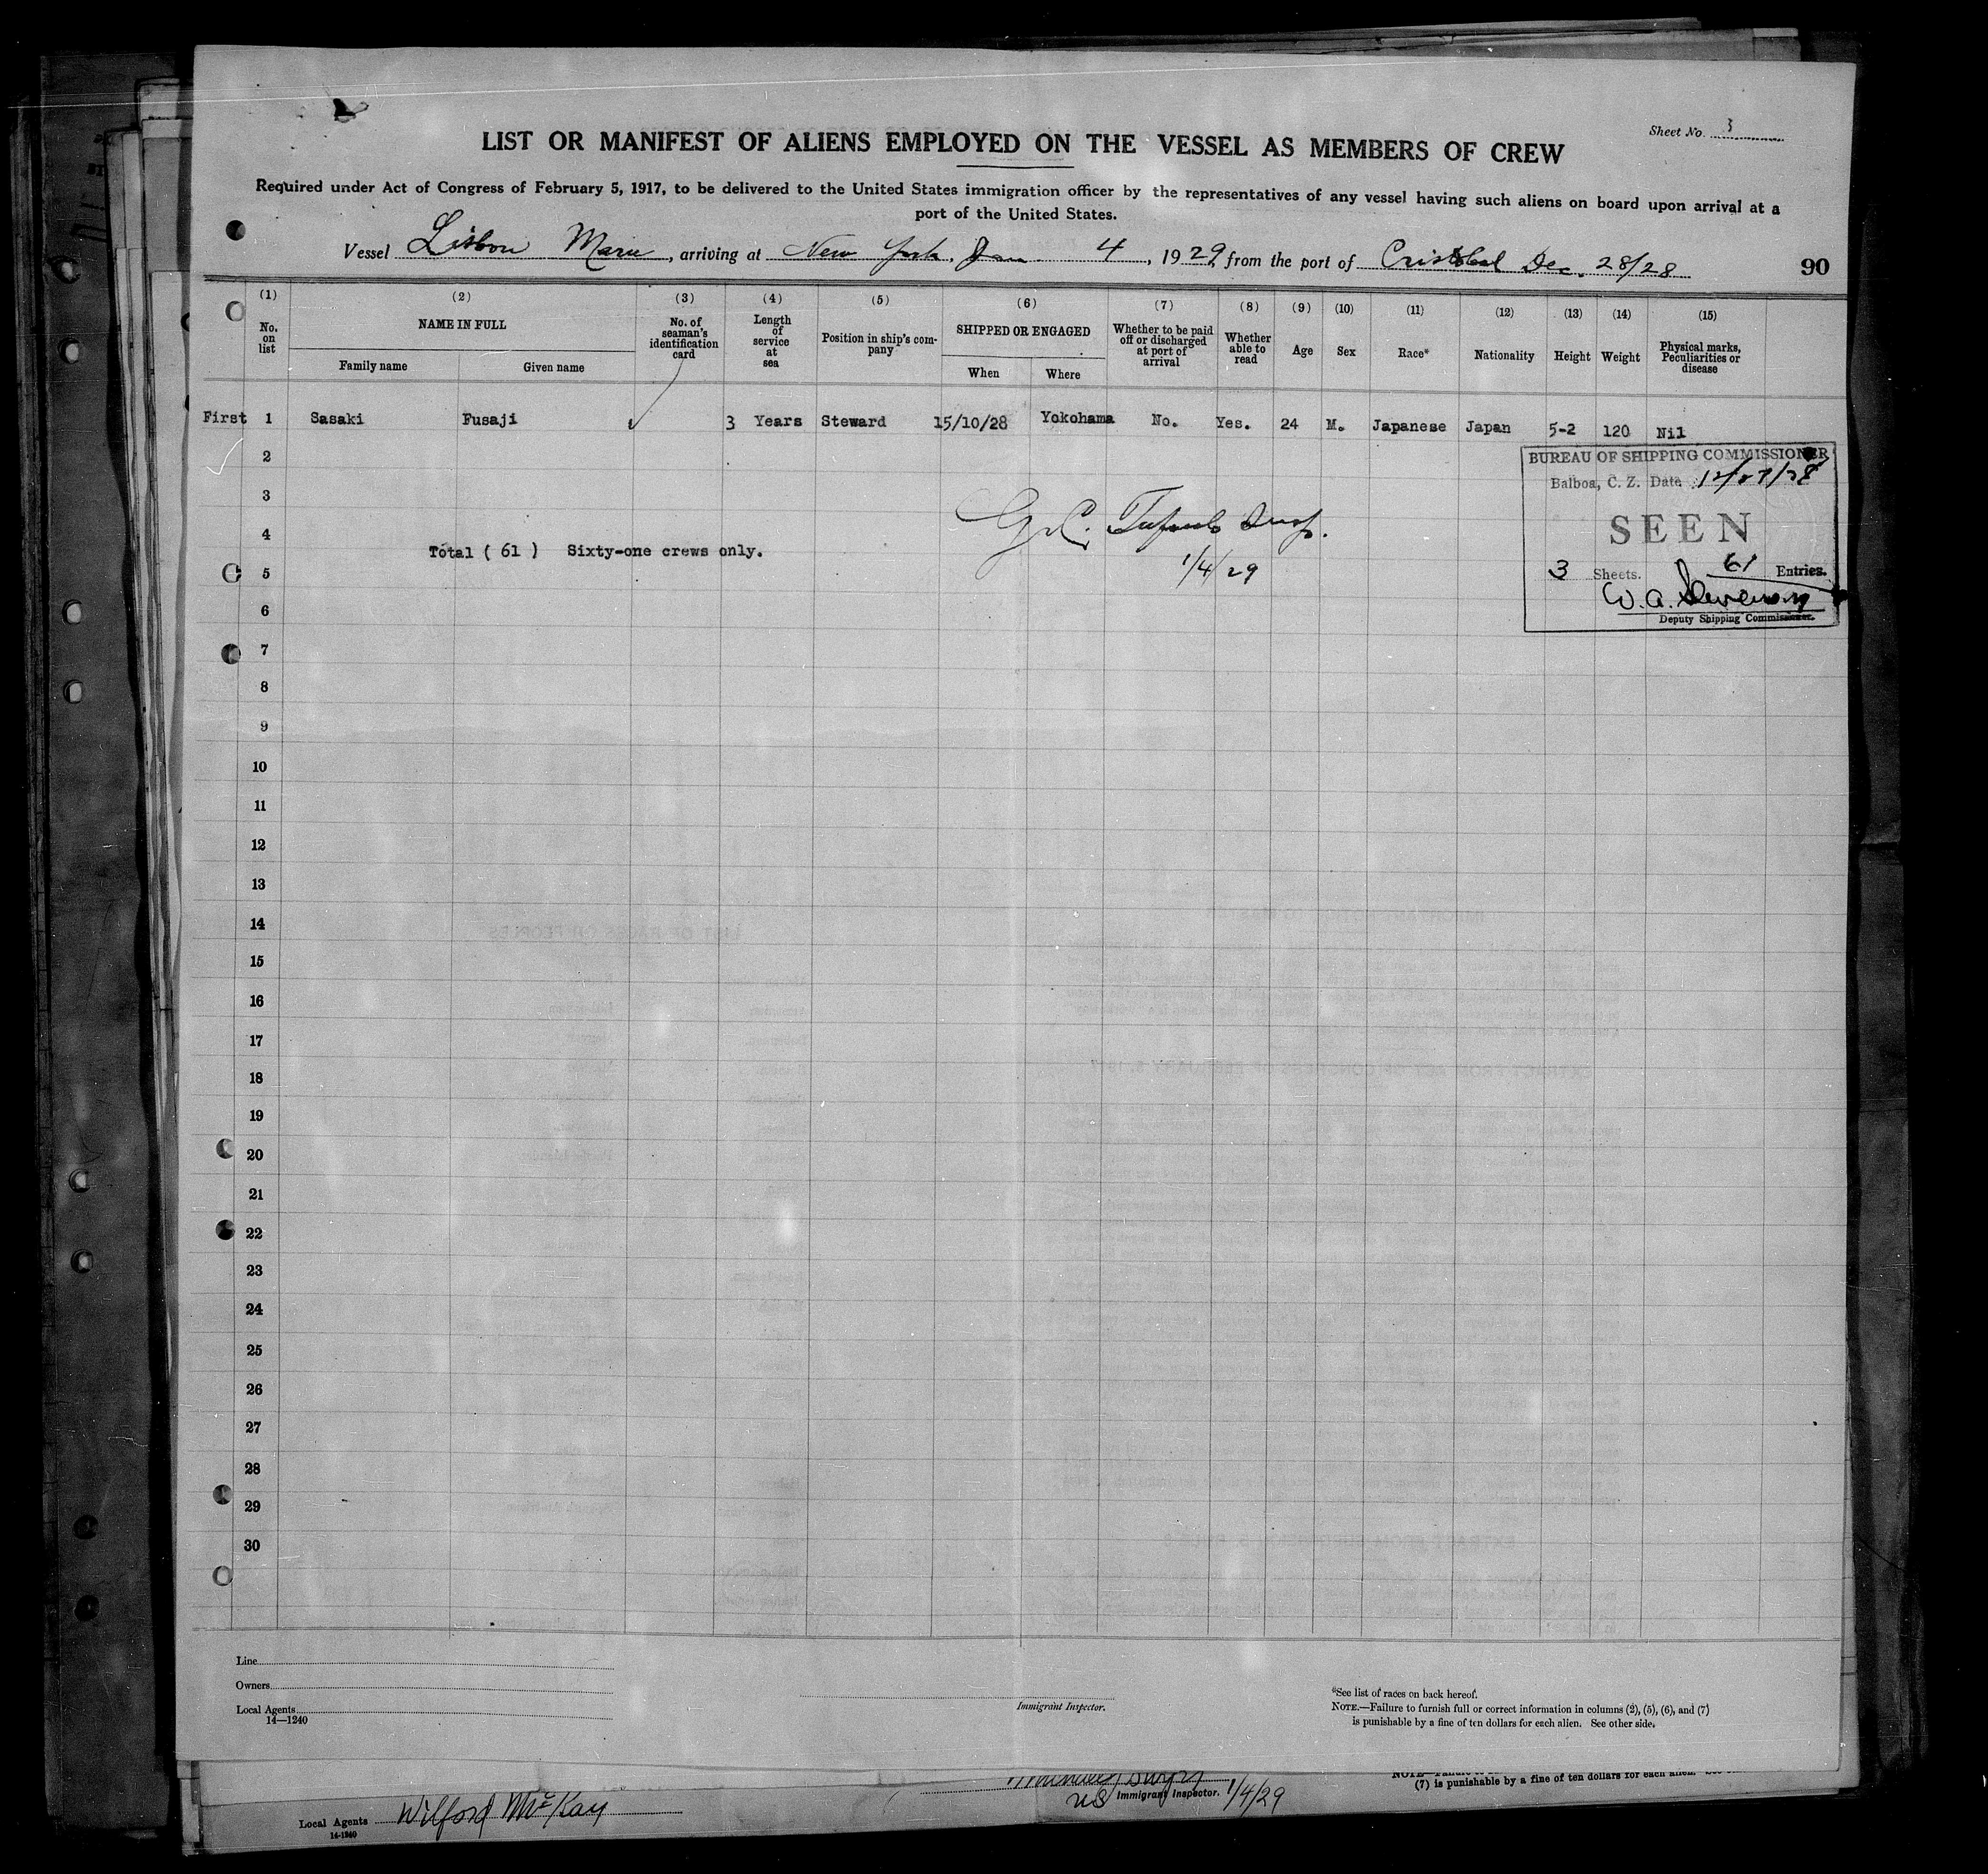 Sheet No. 3
LIST OR MANIFEST OF ALIENS EMPLOYED ON THE VESSEL AS MEMBERS OF CREW
Required under Act of Congress of February 5, 1917, to be delivered to the United States immigration officer by the representatives of any vessel having such aliens on board upon arrival at a
port of the United States.
Vessel Lisbon Maru, arriving at New York, Jan 4, 1929, from the port of Cristobal Dec. 28/28
90
(1) (2) (3) (4) (5) (6) (7) (8) (9) (10) (11) (12) (13) (14) (15)
No. on list
NAME IN FULL
Family name
Given name
No. of seaman's identification card
Length of service at sea
Position in ship's com-
pany
SHIPPED OR ENGAGED
When
Where
Whether to be paid off or discharged at port of arrival
Whether able to read
Age
Sex
Race*
Nationality
Height
Weight
Physical marks, Peculiarities or disease
First 1 Sasaki Fusaji 3 Years Steward 15/10/28 Yokohama No. Yes. 24 M. Japanese Japan 5-2 120 Nil
BUREAU OF SHIPPING COMMISSIONER
Balboa, C. Z. Date 12/27/28
SEEN
3 Sheets. 61 Entries.
W. A.
Deputy Shipping Commissioner.
2
3
4
Total ( 61 ) Sixty-one crews only.
Insp.
1/4/29
5
6
7
8
9
10
11
12
13
14
15
16
17
18
19
20
21
22
23
24
25
26
27
28
29
30
Line
Owners
Local Agents
14—1240
Immigrant Inspector.
*See list of races on back hereof.
NOTE.—Failure to furnish full or correct information in columns (2), (5), (6), and (7)
is punishable by a fine of ten dollars for each alien. See other side.
(7) is punishable by a fine of ten dollars for each alien.
US Immigrant Inspector. 1/4/29
Local Agents Wilford McKay
14-1240